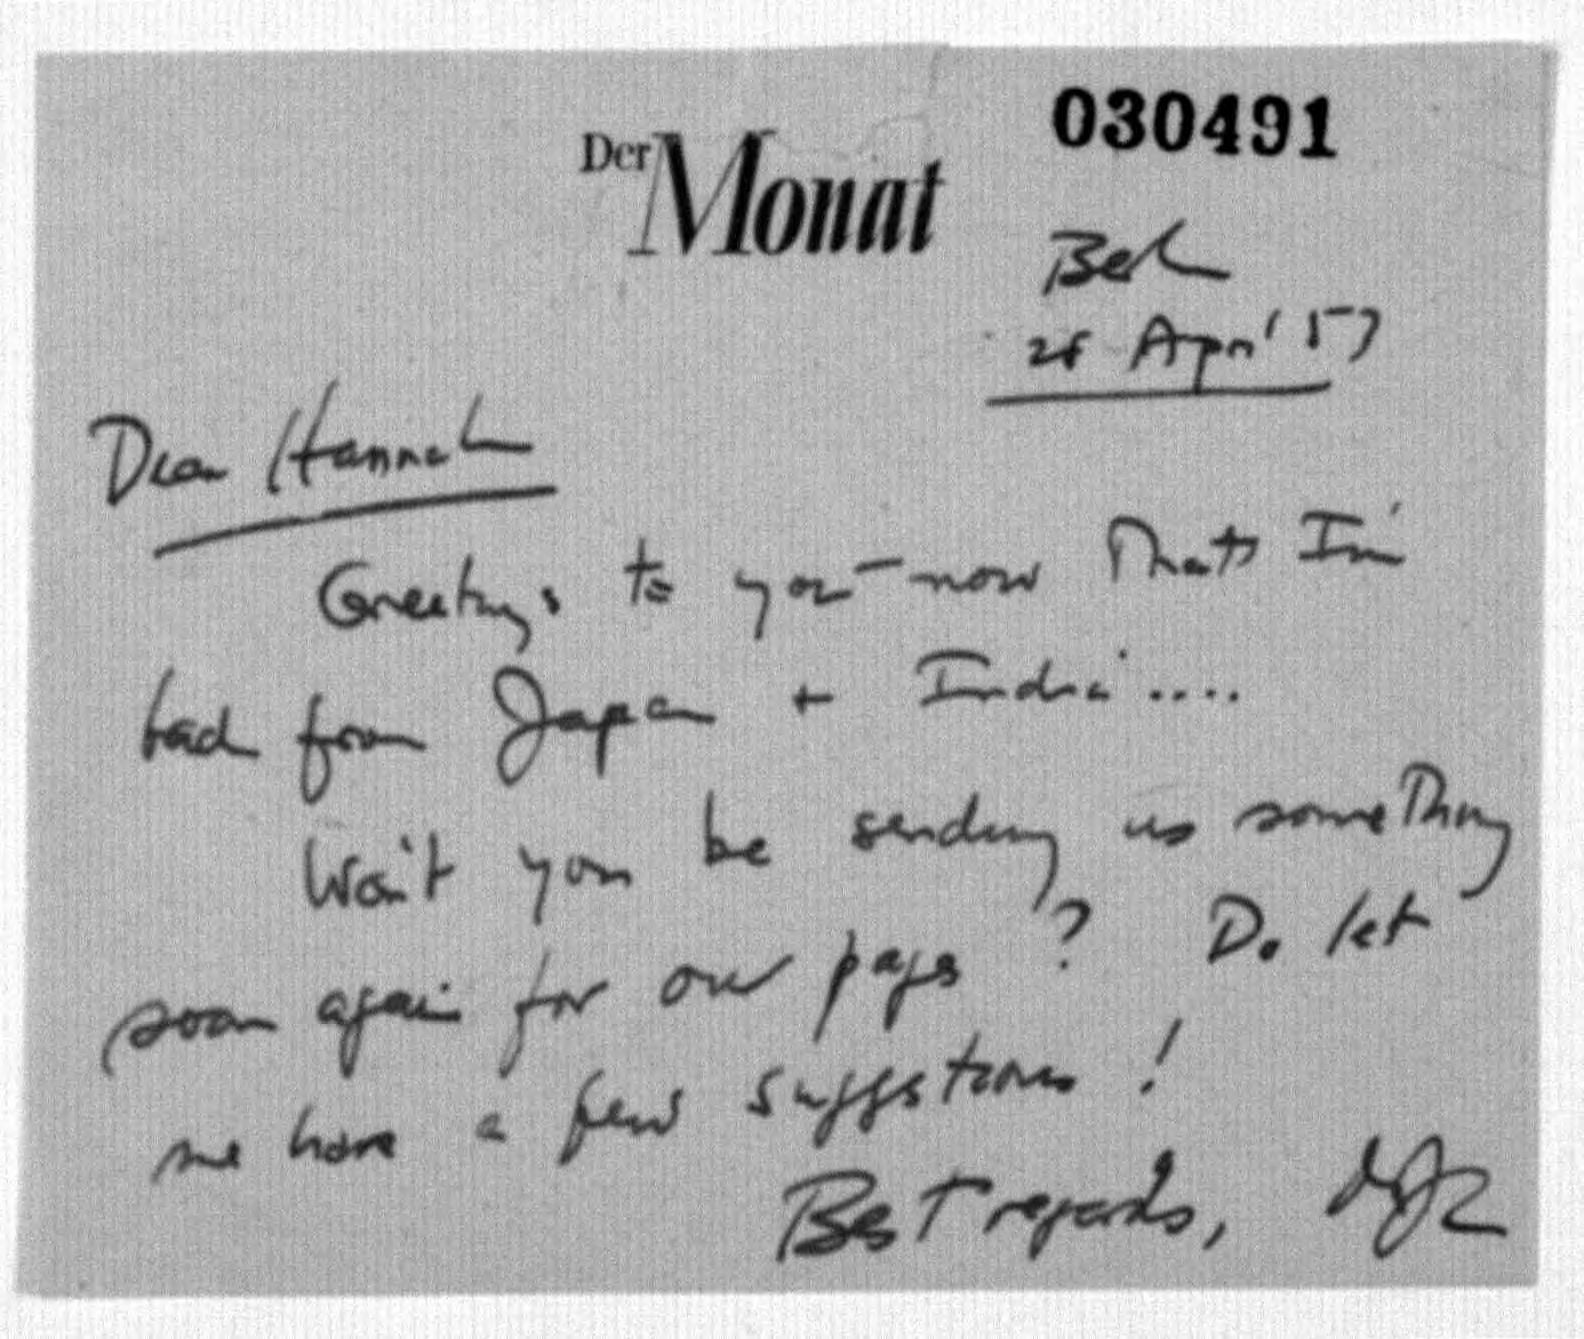 030491
Der Monat
Berlin
28 April 57
Dear Hannah
Greetings to you — now that I'm
back from Japan + India ....
Won't you be sending us something
soon again for our pages ? Do let
me have a few suggestions !
Best regards,